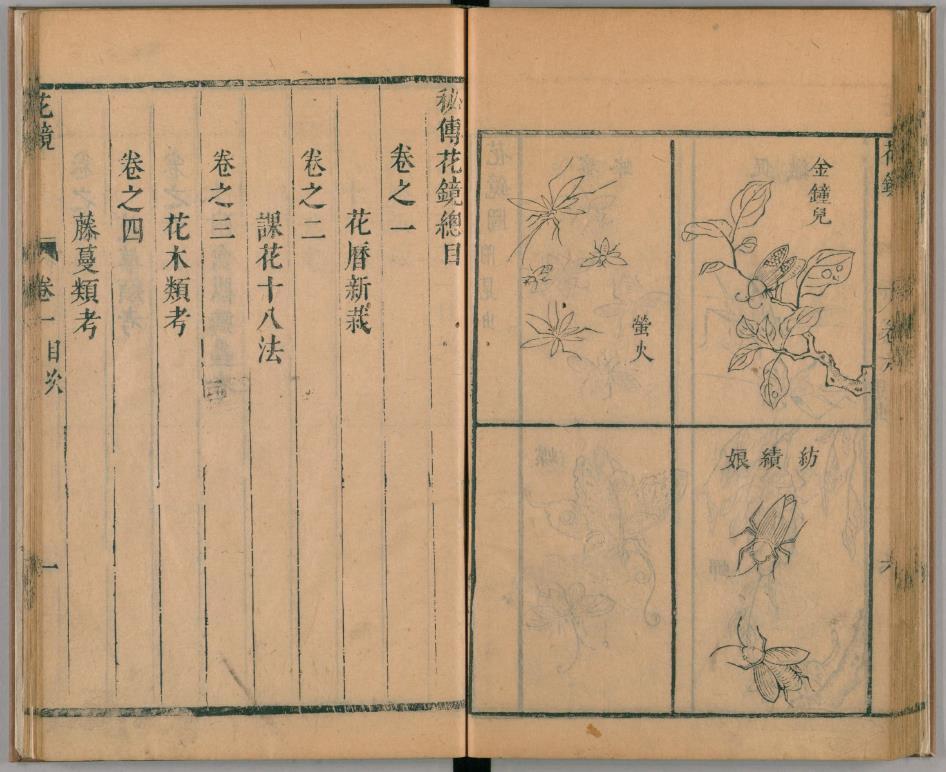 金鐘兒
螢火
紡績娘
秘傳花鏡總目
卷之一
花曆新栽
卷之二
課花十八法
卷之三
花木類考
卷之四
藤蔓類考
花鏡
卷一
目次
一